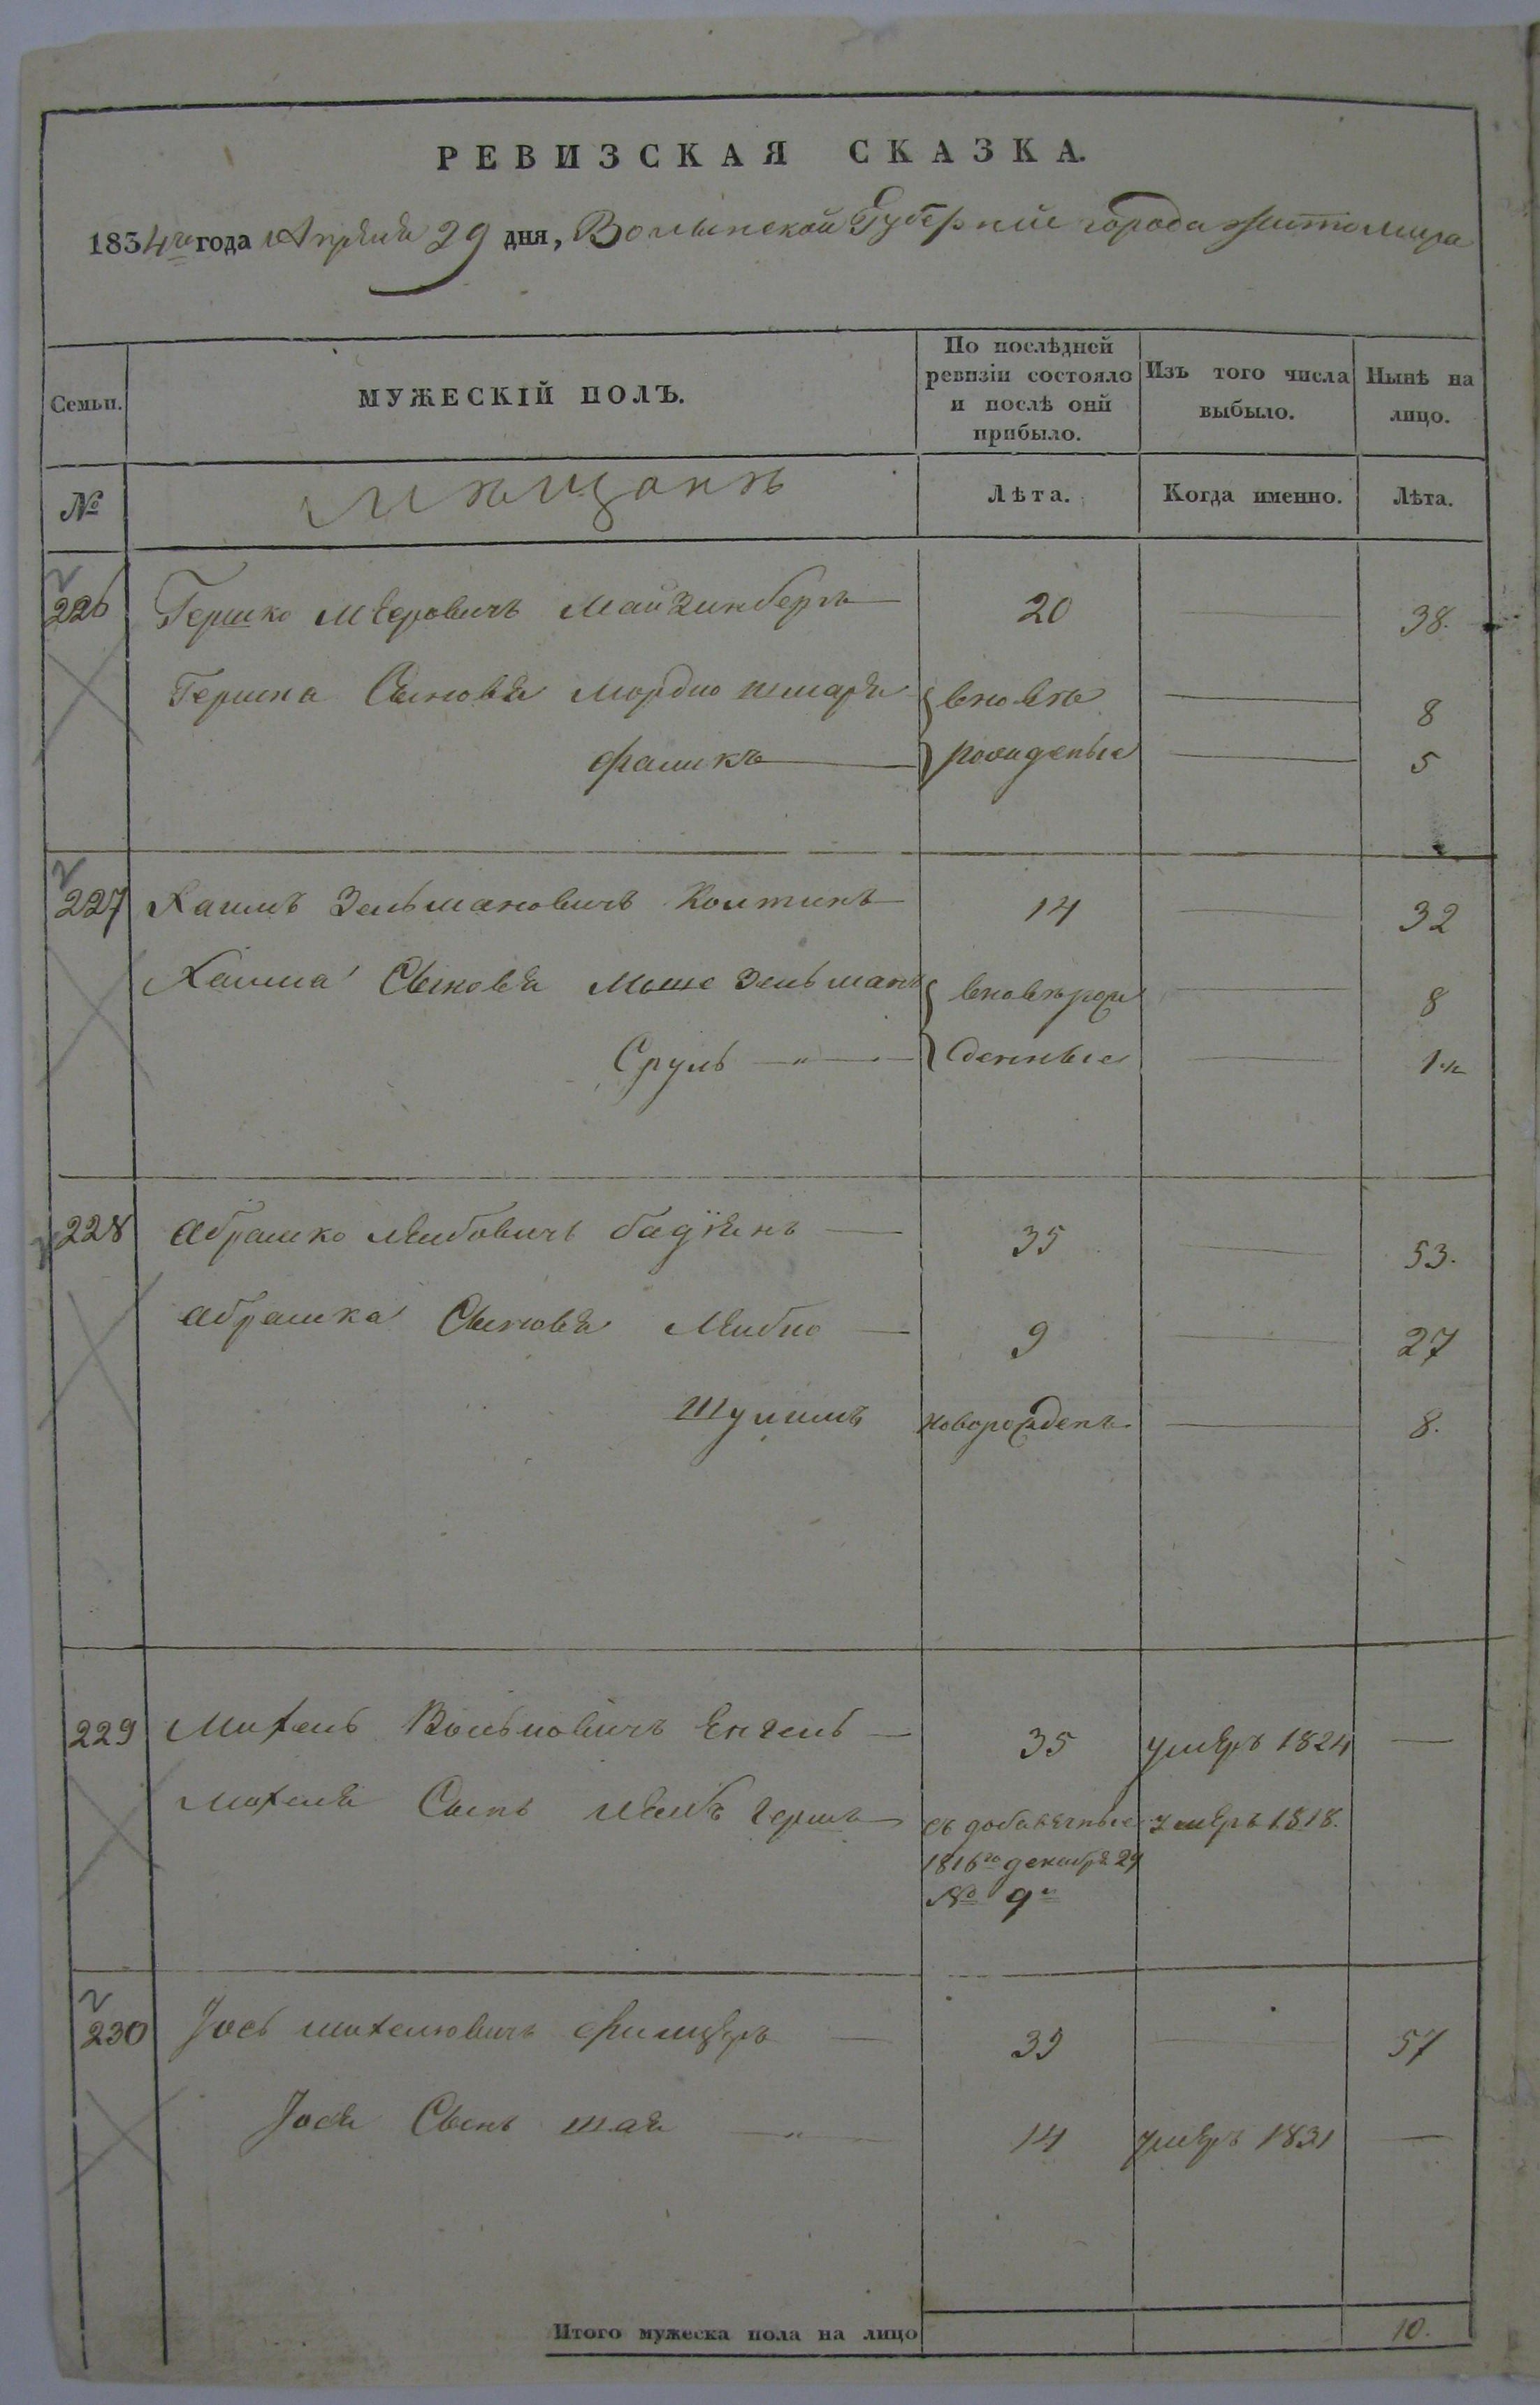 РЕВИЗСКАЯ СКАЗКА.
1834го года Апрѣля 29 дня, Волынской Губерніи города Житомира
Семьи. МУЖЕСКІЙ ПОЛЪ. По послѣдней ревизіи состояло и послѣ оной прибыло. Изъ того числа выбыло. Нынѣ на лицо.
№ Мѣщанъ Лѣта. Когда именно. Лѣта.
226 Гершко Мѣеровичъ Майзинбергъ 20 38.
Гершка Сыновья Мордко шмаря вновь 8
Фаликъ рожденые 5
227 Хаимъ Зельмановичъ Колтинъ 14 32
Хаима Сыновья Моше Зельманъ вновь рож 8
Сруль денные 1 ½
228 Абрашко Лѣйбовичъ 35 53.
Абрашка Сыновья Лѣйбко 9 27
Шулимъ новорожденъ 8.
229 Михель Вольковичъ Енгель 35 умѣръ 1824
Михеля Сынъ Лѣйбъ Гершъ съ добавочные умѣръ 1818.
1816го декабря 29
№ 9
230 Іось Михелювичъ Филцеръ 39 57
Іося Сынъ Шая 14 умѣръ 1831
Итого мужеска пола на лицо 10.